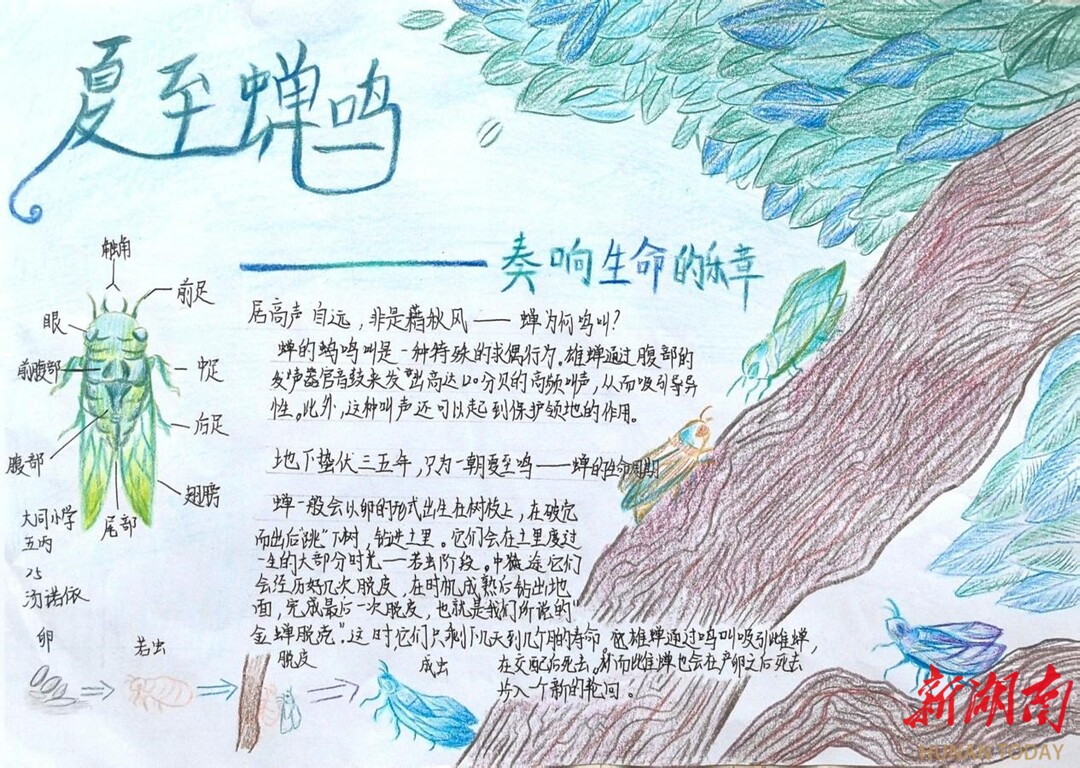 夏至蝉鸣
奏响生命的乐章
触角
前足
眼
前腹部
中足
后足
腹部
翅膀
尾部
大同小学
五丙
25
汤诺依
居高声自远，非是藉秋风——蝉为何鸣叫？
蝉的鸣叫是一种特殊的求偶行为。雄蝉通过腹部的
发声器官音鼓来发出高达120分贝的高频叫声，从而吸引异
性。此外，这种叫声还可以起到保护领地的作用。
地下蛰伏三五年，只为一朝夏至鸣——蝉的生命周期
蝉一般会以卵的形式出生在树枝上，在破壳
而出后“跳”下树，钻进土里。它们会在土里度过
一生的大部分时光——若虫阶段。中途它们
会经历好几次脱皮，在时机成熟后钻出地
面，完成最后一次脱皮，也就是我们所说的“
金蝉脱壳”。这时，它们只剩下几天到几个月的寿命 雄蝉通过鸣叫吸引雌蝉，
在交配后死去。然而雌蝉也会在产卵之后死去
步入一个新的轮回。
卵
若虫
脱皮
成虫
新湖南
HUNAN TODAY